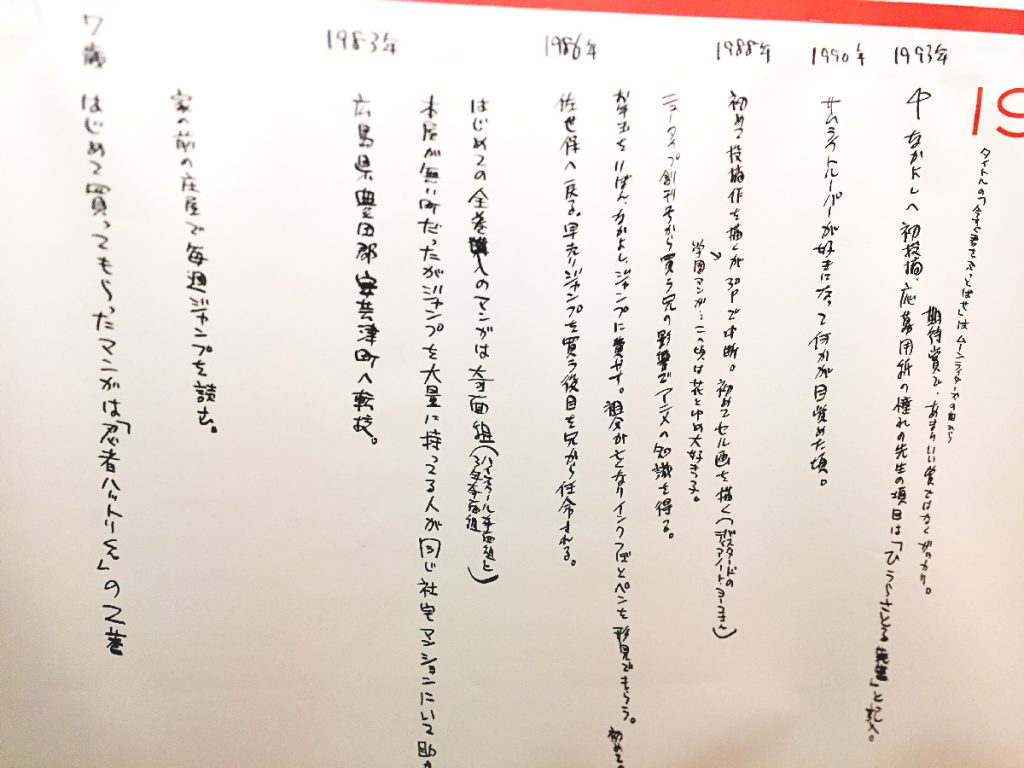 19
タイトルの「今すぐ君をぶっとばせ」は ムーンライダーズの曲から
1993年
期待賞で、あまりいい賞ではなくがっかり。
中 なかよしへ初投稿、応募用紙の憧れの先生の項目は「ひうらさとる先生」と記入。
1990年
サムライトルーパーが好きになって何かが目覚めた頃。
1988年
初めて投稿作を描くが30Pで中断。初めてセル画を描く(バスタードの
ヨーコさん)
学園マンガ…この頃は花とゆめ大好きっ子。
ニュータイプ創刊号から買う兄の影響でアニメの知識を得る。
お年玉をりぼん、なかよし、ジャンプに費やす。祖父が亡くなりインクつぼとペンを形見でもらう。初めて
1986年
佐世保へ戻る。早売りジャンプを買う役目を兄から任命される。
はじめての全巻購入のマンガは奇面組(ハイスクール奇面組と
3年奇面組)
本屋が無い町だったがジャンプを大量に持ってる人が同じ社宅マンションにいて助
1983年
広島県豊田郡安芸津町へ転校。
家の前の床屋で毎週ジャンプを読む。
7歳
はじめて買ってもらったマンガは「忍者ハットリくん」の2巻